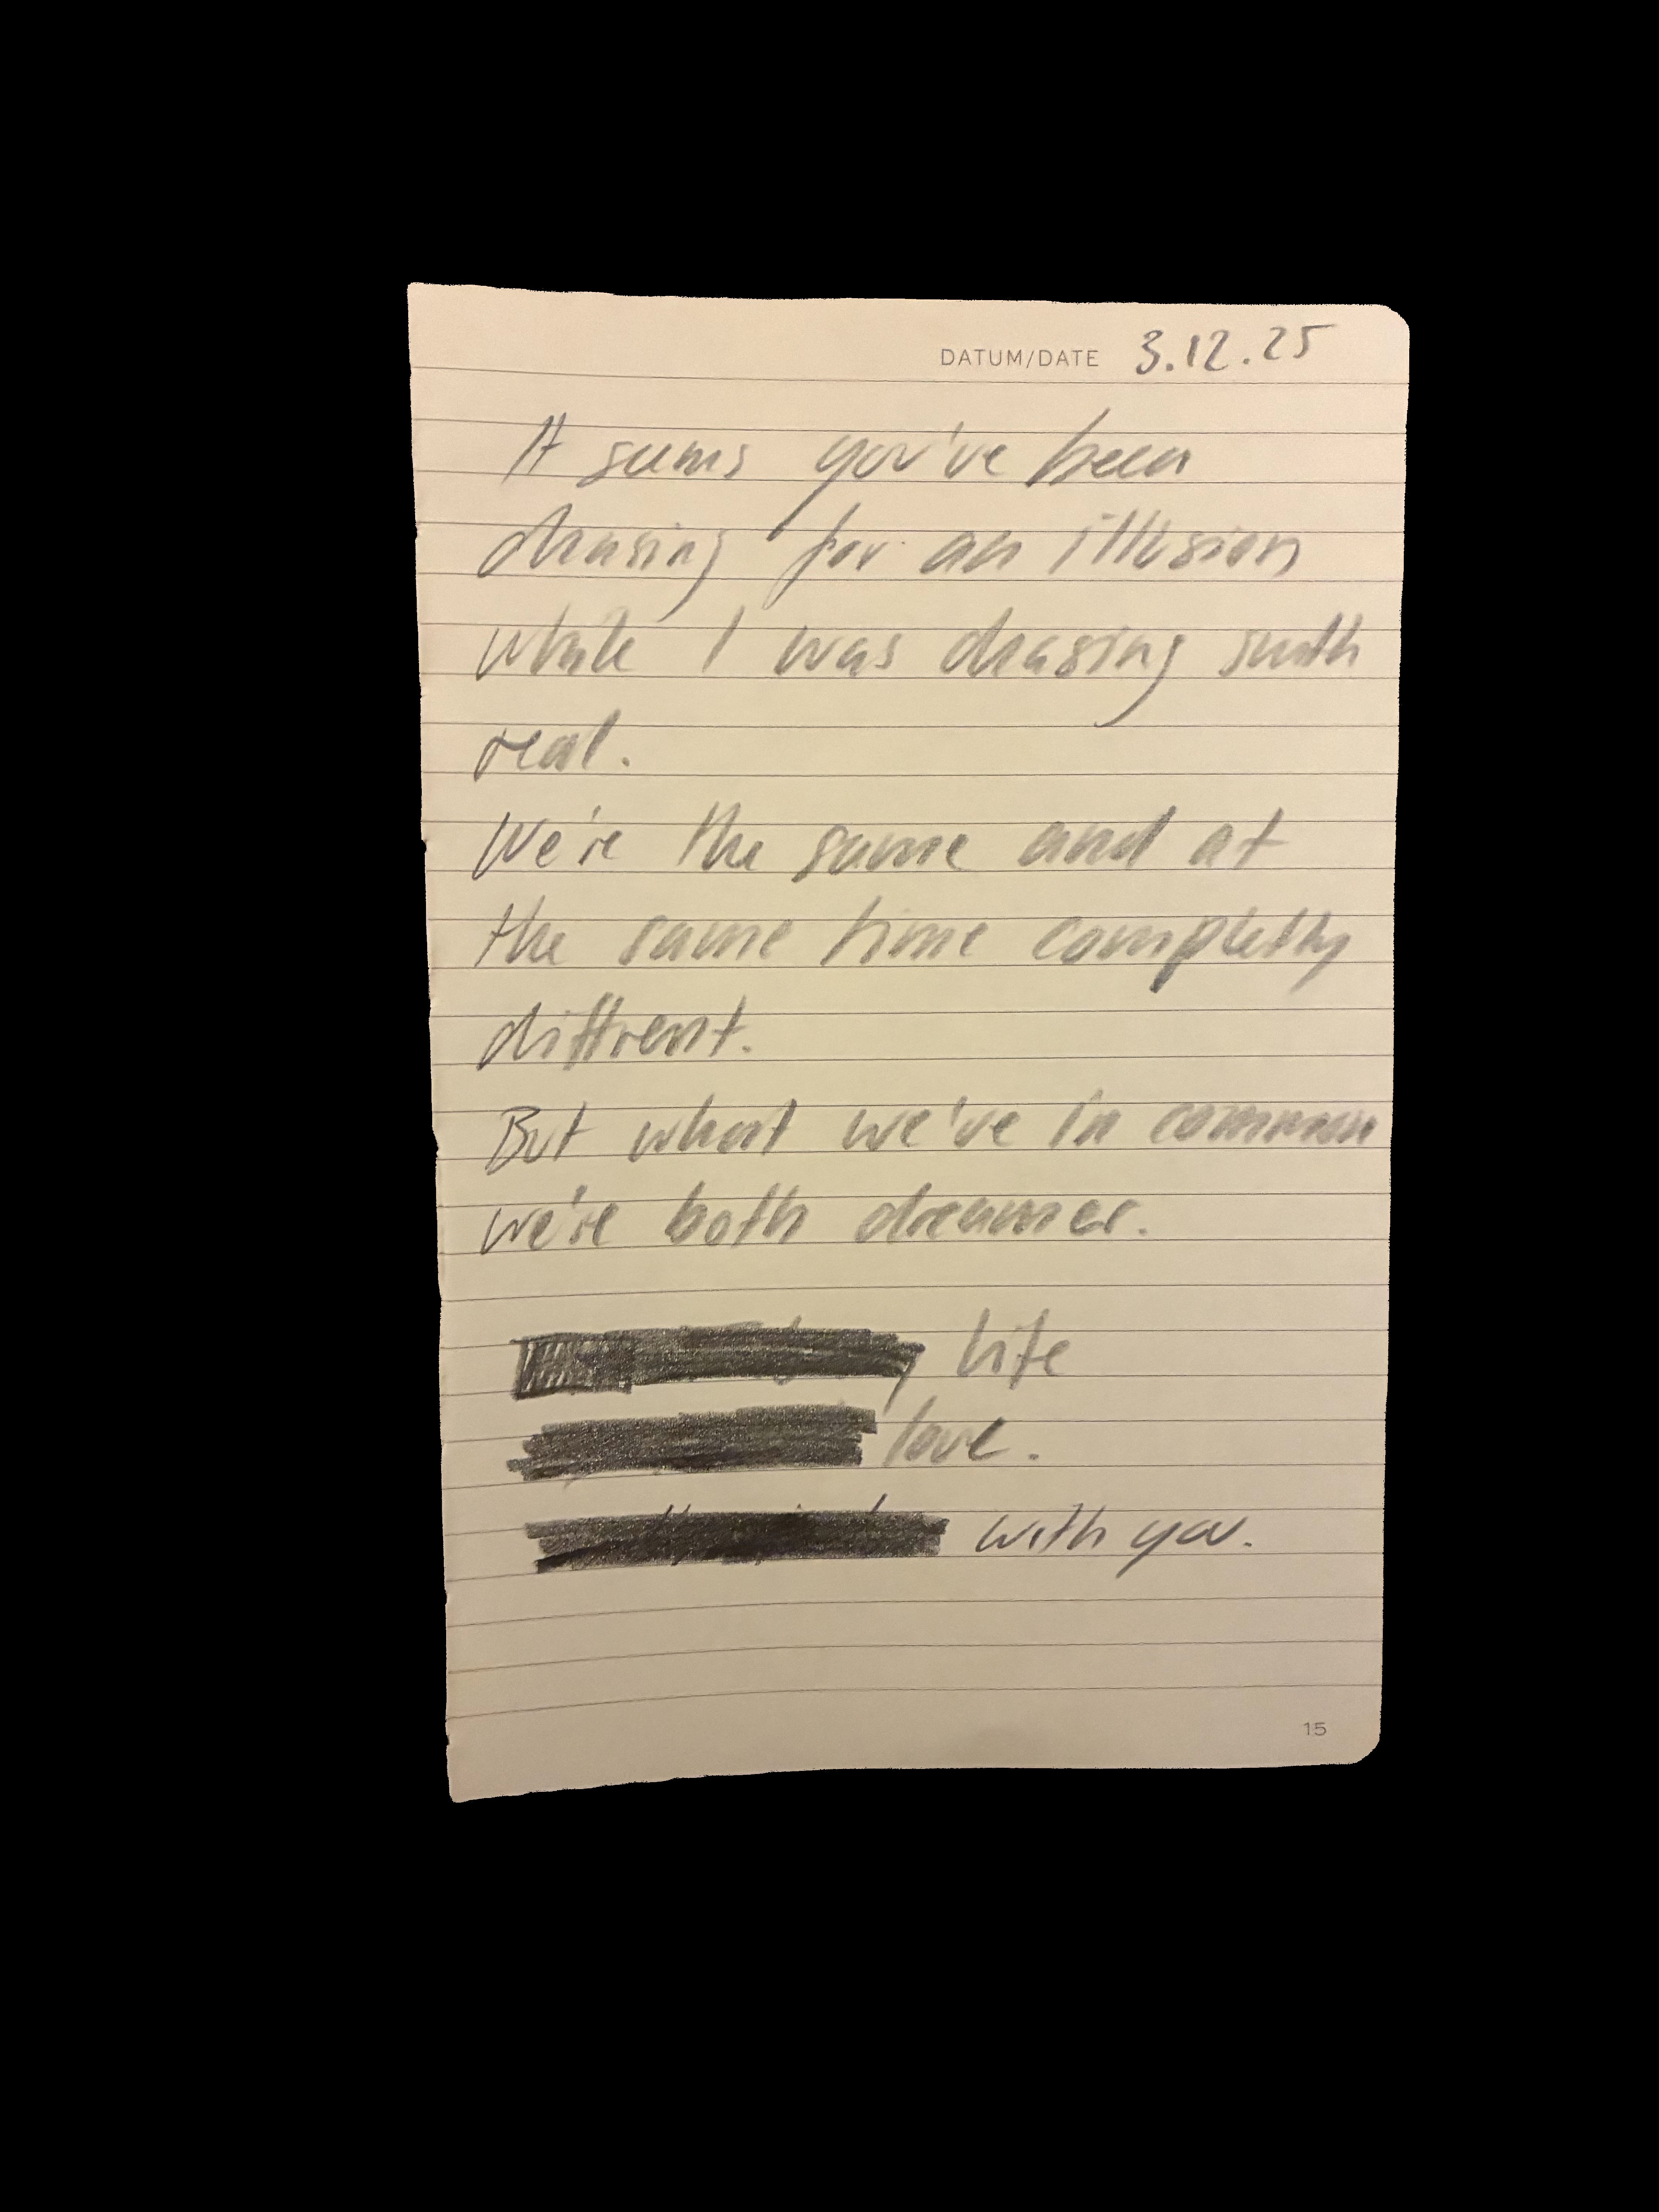 DATUM/DATE 3.12.25
It seems you've been
chasing for an illusion
while I was chasing smth
real.
We're the same and at
the same time completly
diffrent.
But what we've in common
we're both dreamer.
life
love.
with you.
15